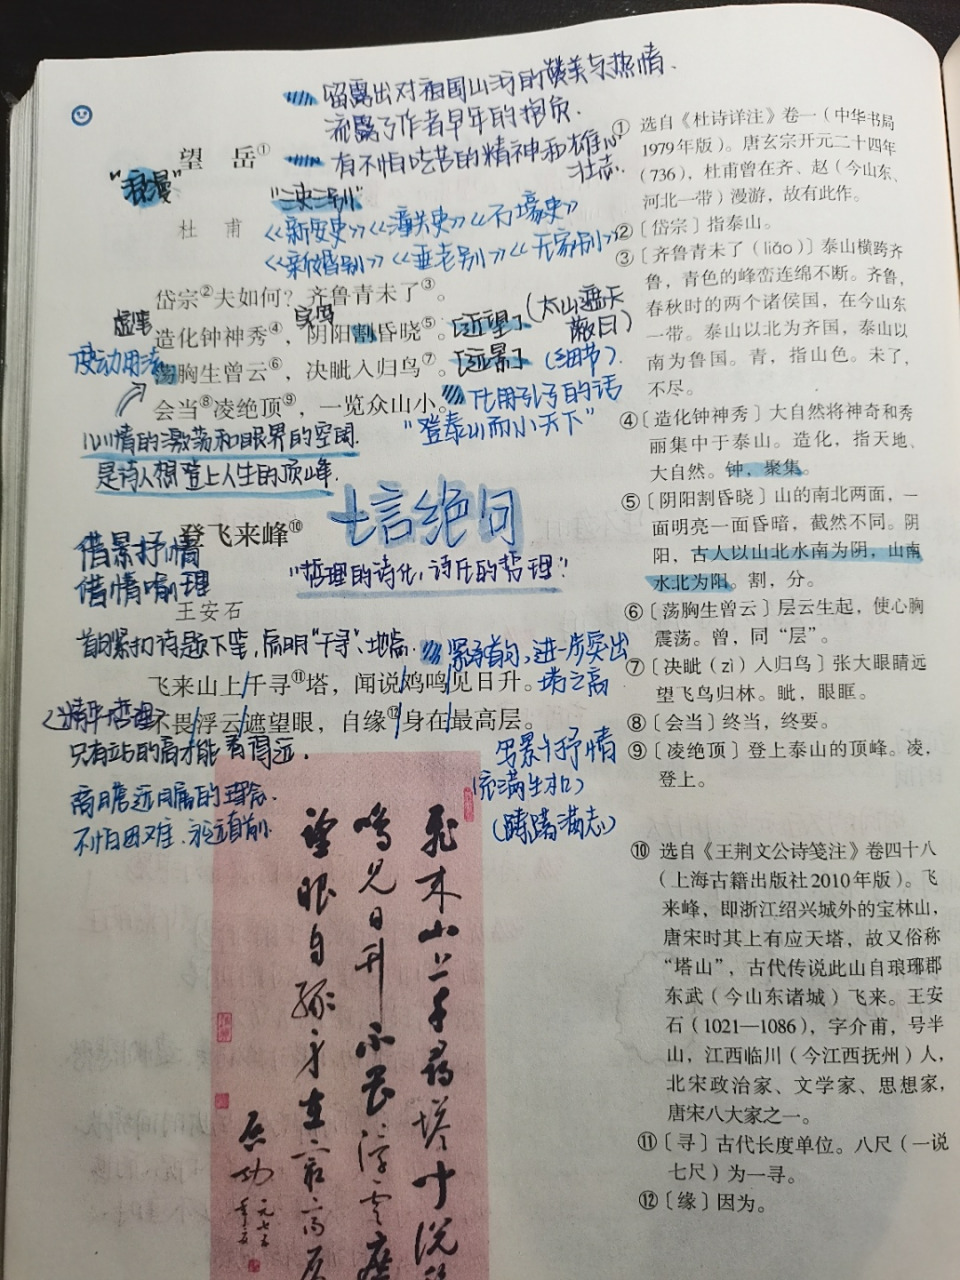 流露出对祖国山河的赞美与热情.
流露了作者早年的抱负.
有不怕吃苦的精神和雄心
壮志.
望 岳①
"浪漫"
杜 甫
"三吏三别"
《新安吏》《潼关吏》《石壕吏》
《新婚别》《垂老别》《无家别》
岱宗②夫如何？齐鲁青未了③。
虚写
实写
造化钟神秀④，阴阳割昏晓⑤。
「近望」
(太山遮天
蔽日)
使动用法
荡胸生曾云⑥，决眦入归鸟⑦。
「远景」
(细节).
会当⑧凌绝顶⑨，一览众山小。
化用孔子的话
"登泰山而小天下"
心情的激荡和眼界的空阔.
是诗人想登上人生的顶峰.
七言绝句
登飞来峰⑩
借景抒情
借情喻理
"哲理的诗化,诗化的哲理."
王安石
首句紧扣诗题下笔,点明"千寻"、地点.
紧承首句,进一步突出
塔之高
飞来山上千寻⑪塔，闻说鸡鸣见日升。
不畏浮云遮望眼，自缘⑫身在最高层。
只有站的高才能看得远.
高瞻远瞩的理念.
不怕困难.永远直前.
写景中抒情
(充满生机)
(踌躇满志)
飞来山上千寻塔
闻说
鸣见日升不畏浮云遮
望眼自缘身在最高层
启功
① 选自《杜诗详注》卷一（中华书局
1979年版）。唐玄宗开元二十四年
（736），杜甫曾在齐、赵（今山东、
河北一带）漫游，故有此作。
②〔岱宗〕指泰山。
③〔齐鲁青未了（liǎo）〕泰山横跨齐
鲁，青色的峰峦连绵不断。齐鲁，
春秋时的两个诸侯国，在今山东
一带。泰山以北为齐国，泰山以
南为鲁国。青，指山色。未了，
不尽。
④〔造化钟神秀〕大自然将神奇和秀
丽集中于泰山。造化，指天地、
大自然。钟，聚集。
⑤〔阴阳割昏晓〕山的南北两面，一
面明亮一面昏暗，截然不同。阴
阳，古人以山北水南为阴，山南
水北为阳。割，分。
⑥〔荡胸生曾云〕层云生起，使心胸
震荡。曾，同“层”。
⑦〔决眦（zì）入归鸟〕张大眼睛远
望飞鸟归林。眦，眼眶。
⑧〔会当〕终当，终要。
⑨〔凌绝顶〕登上泰山的顶峰。凌，
登上。
⑩ 选自《王荆文公诗笺注》卷四十八
（上海古籍出版社2010年版）。飞
来峰，即浙江绍兴城外的宝林山，
唐宋时其上有应天塔，故又俗称
“塔山”，古代传说此山自琅琊郡
东武（今山东诸城）飞来。王安
石（1021—1086），字介甫，号半
山，江西临川（今江西抚州）人，
北宋政治家、文学家、思想家，
唐宋八大家之一。
⑪〔寻〕古代长度单位。八尺（一说
七尺）为一寻。
⑫〔缘〕因为。